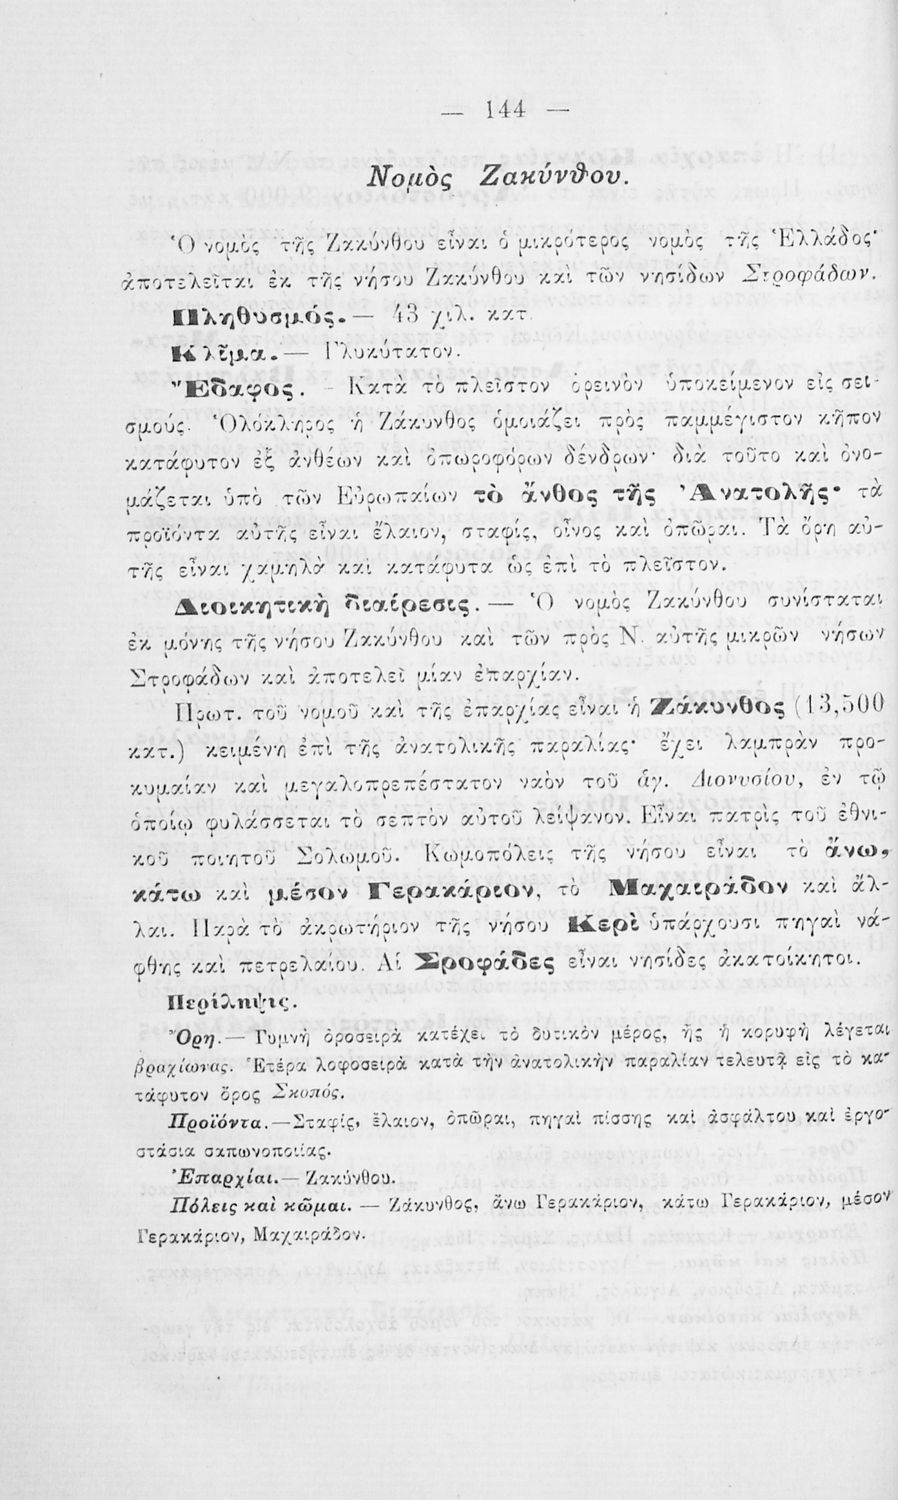 — 144 —
Νομὸς Ζακύνθου.
Ὁ νομὸς τῆς Ζακύνθου εἶναι ὁ μικρότερος νομὸς τῆς Ἑλλάδος·
ἀποτελεῖται ἐκ τῆς νήσου Ζακύνθου καὶ τῶν νησίδων Στροφάδων.
Πληθυσμός.— 43 χιλ. κατ.
Κλῖμα.— Γλυκύτατον.
Ἔδαφος. — Κατὰ τὸ πλεῖστον ὀρεινὸν ὑποκείμενον εἰς σει-
σμούς. Ὁλόκληρος ἡ Ζάκυνθος ὁμοιάζει πρὸς παμμέγιστον κῆπον
κατάφυτον ἐξ ἀνθέων καὶ ὀπωροφόρων δένδρων· διὰ τοῦτο καὶ ὀνο-
μάζεται ὑπὸ τῶν Εὐρωπαίων τὸ ἄνθος τῆς Ἀνατολῆς· τὰ
προϊόντα αὐτῆς εἶναι ἔλαιον, σταφίς, οἶνος καὶ ὀπῶραι. Τὰ ὄρη αὐ-
τῆς εἶναι χαμηλὰ καὶ κατάφυτα ὡς ἐπὶ τὸ πλεῖστον.
Διοικητικὴ διαίρεσις.— Ὁ νομὸς Ζακύνθου συνίσταται
ἐκ μόνης τῆς νήσου Ζακύνθου καὶ τῶν πρὸς Ν. αὐτῆς μικρῶν νήσων
Στροφάδων καὶ ἀποτελεῖ μίαν ἐπαρχίαν.
Πρωτ. τοῦ νομοῦ καὶ τῆς ἐπαρχίας εἶναι ἡ Ζάκυνθος (13,500
κατ.) κειμένη ἐπὶ τῆς ἀνατολικῆς παραλίας· ἔχει λαμπρὰν προ-
κυμαίαν καὶ μεγαλοπρεπέστατον ναὸν τοῦ ἁγ. Διονυσίου, ἐν τῷ
ὁποίῳ φυλάσσεται τὸ σεπτὸν αὐτοῦ λείψανον. Εἶναι πατρὶς τοῦ ἐθνι-
κοῦ ποιητοῦ Σολωμοῦ. Κωμοπόλεις τῆς νήσου εἶναι τὸ ἄνω,
κάτω καὶ μέσον Γερακάριον, τὸ Μαχαιράδον καὶ ἄλ-
λαι. Παρὰ τὸ ἀκρωτήριον τῆς νήσου Κερὶ ὑπάρχουσι πηγαὶ νά-
φθης καὶ πετρελαίου. Αἱ Σροφάδες εἶναι νησίδες ἀκατοίκητοι.
Περίληψις.
Ὄρη.— Γυμνὴ ὀροσειρὰ κατέχει τὸ δυτικὸν μέρος, ἧς ἡ κορυφὴ λέγεται
βραχίωνας. Ἑτέρα λοφοσειρὰ κατὰ τὴν ἀνατολικὴν παραλίαν τελευτᾷ εἰς τὸ κα-
τάφυτον ὄρος Σκοπός.
Προϊόντα.—Σταφίς, ἔλαιον, ὀπῶραι, πηγαὶ πίσσης καὶ ἀσφάλτου καὶ ἐργο-
στάσια σαπωνοποιίας.
Ἐπαρχίαι.— Ζακύνθου.
Πόλεις καὶ κῶμαι. — Ζάκυνθος, ἄνω Γερακάριον, κάτω Γερακάριον, μέσον
Γερακάριον, Μαχαιράδον.